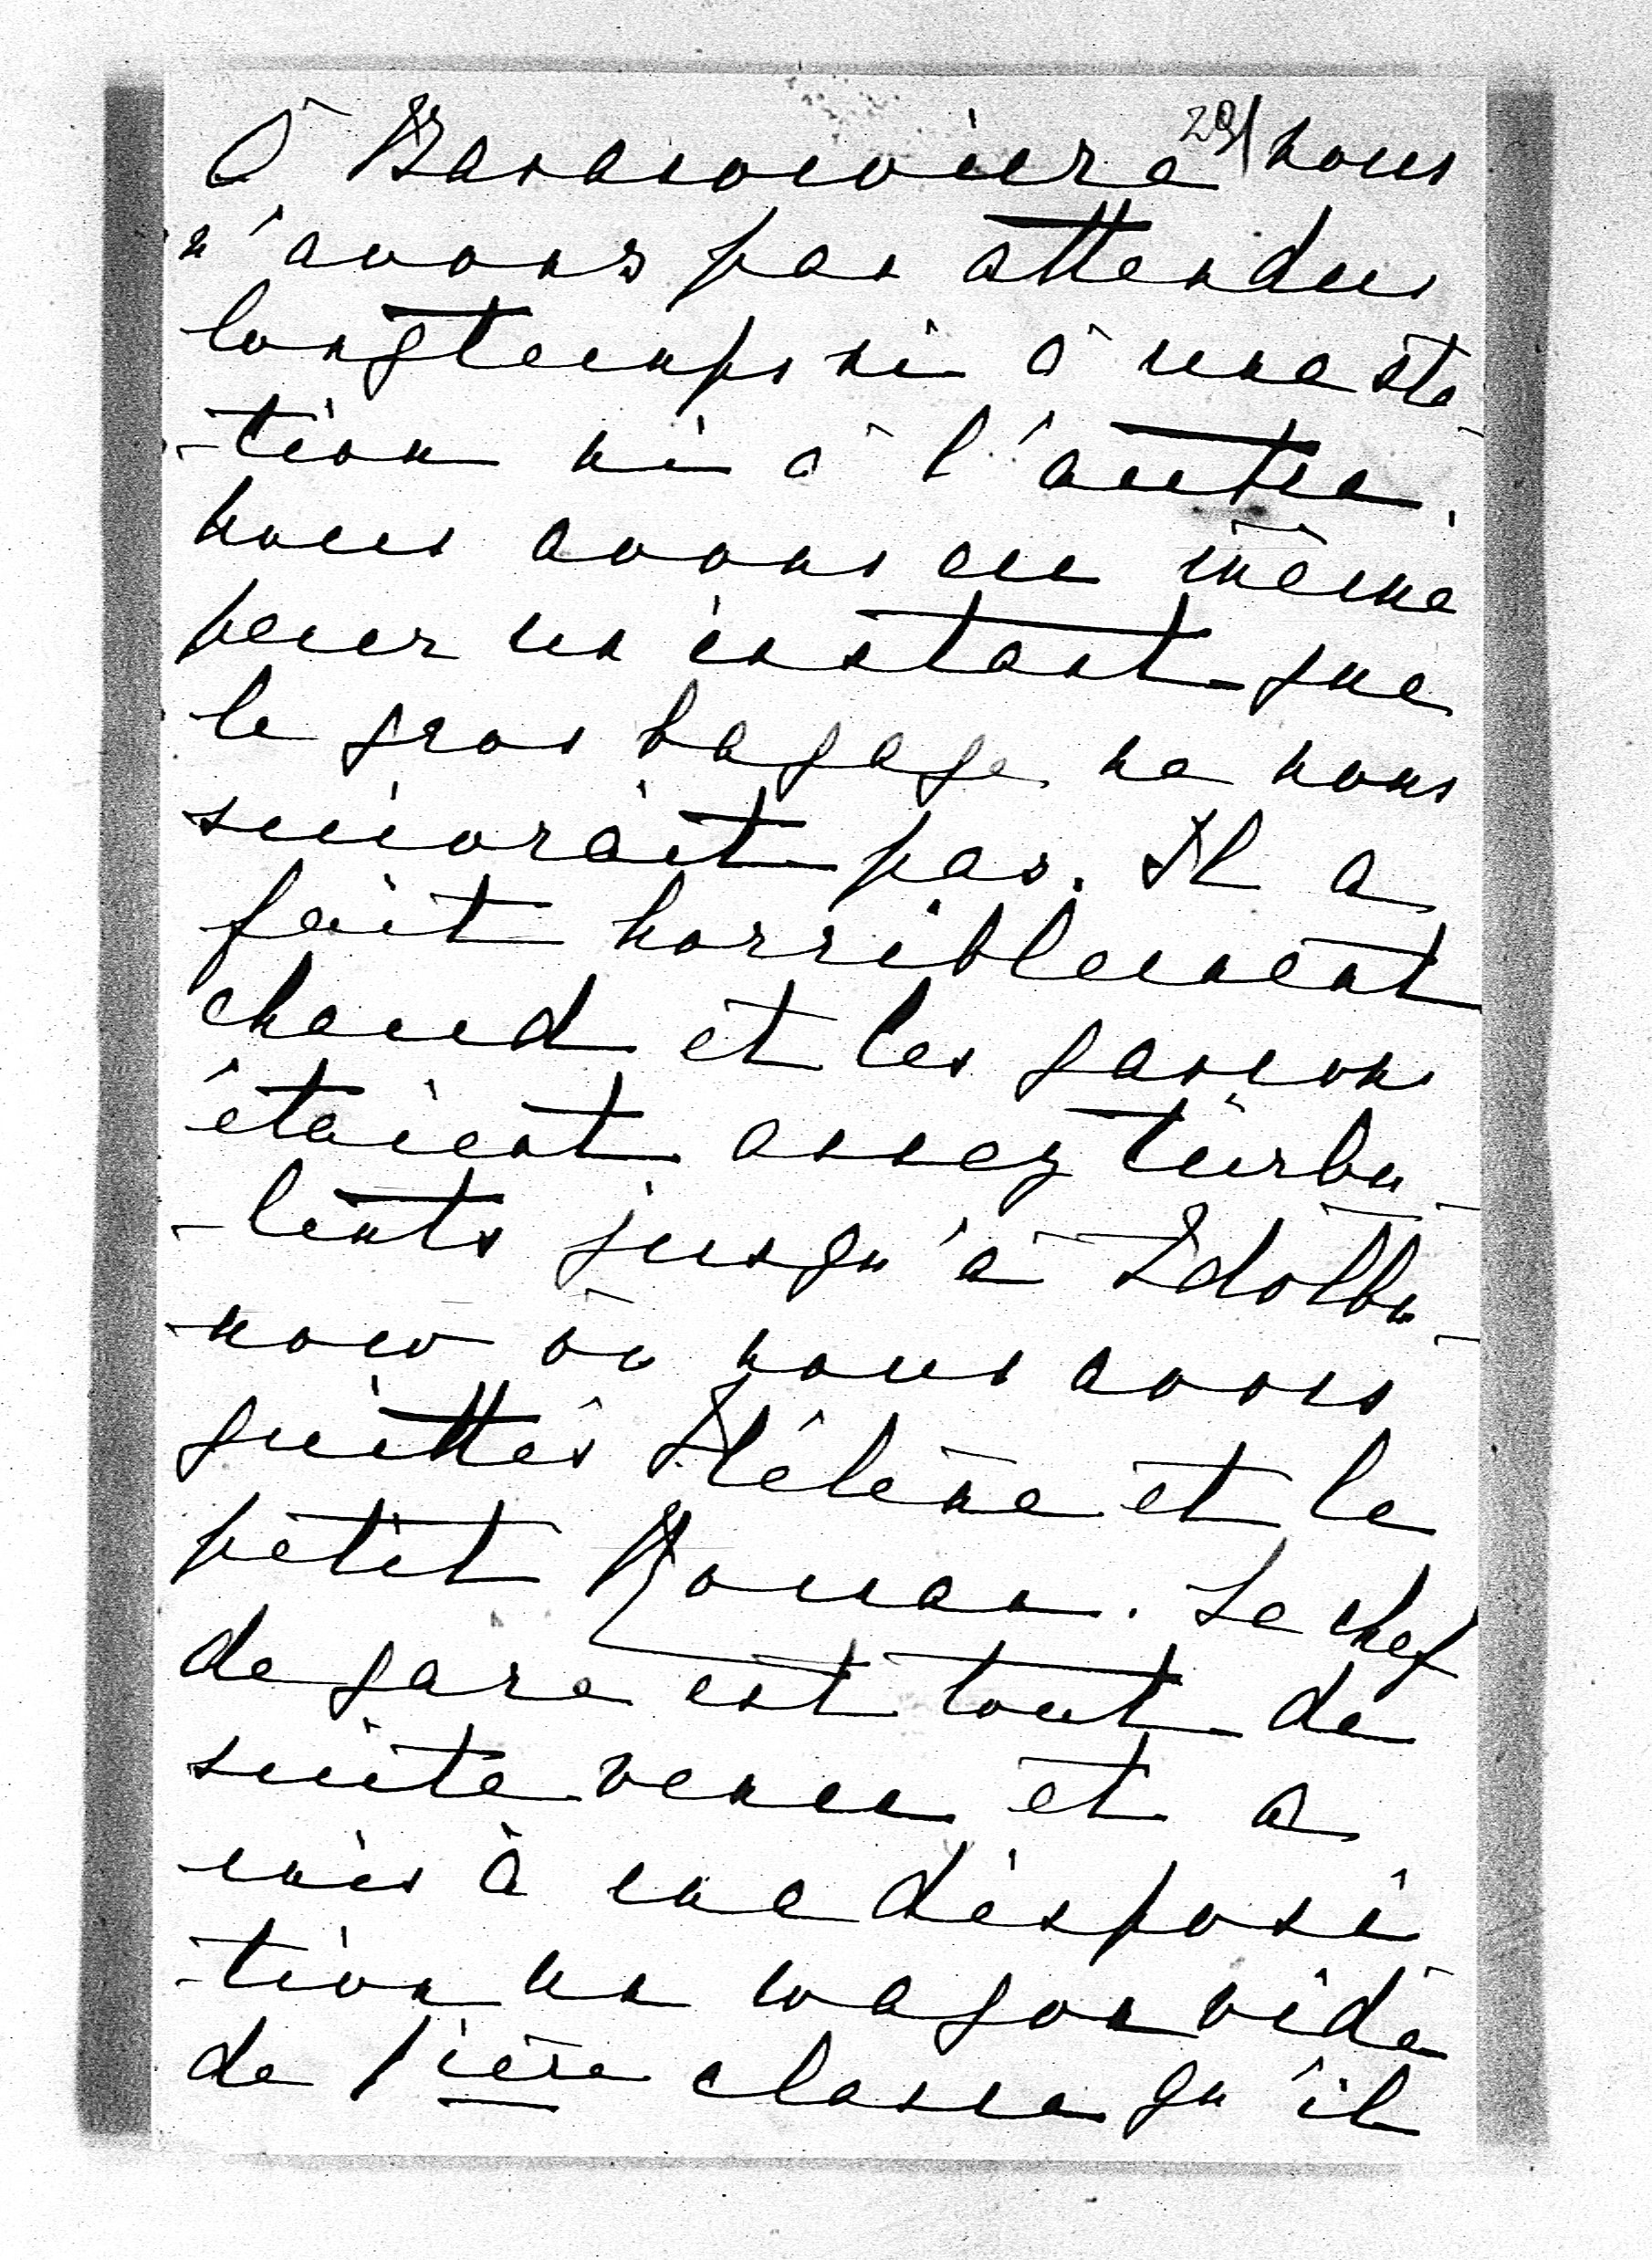 à Baranowicze 29/ nous
n'avons pas attendus
longtemps ni à une sta
-tion ni à l'autre.
nous avons eu même
peur un instant que
le gros bagage ne nous
suivrait pas. Il a
fait horriblement
chaud et les garçons
étaient assez turbu-
-lents jusqu'à Zdolbu-
-now où nous avons
quittés Hélène et le
petit Roman. Le chef
de gare est tout de
suite venu et a
mis à ma disposi
-tion un wagon vide
de 1ière classe qu'il